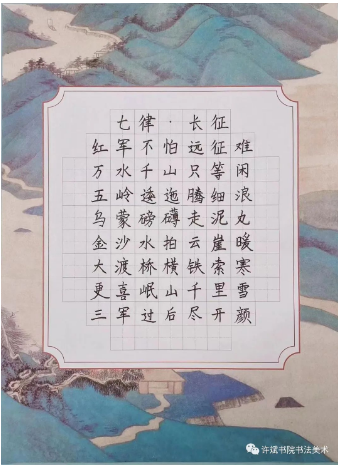 七律·长征
红军不怕远征难
万水千山只等闲
五岭逶迤腾细浪
乌蒙磅礴走泥丸
金沙水拍云崖暖
大渡桥横铁索寒
更喜岷山千里雪
三军过后尽开颜
许斌书院书法美术